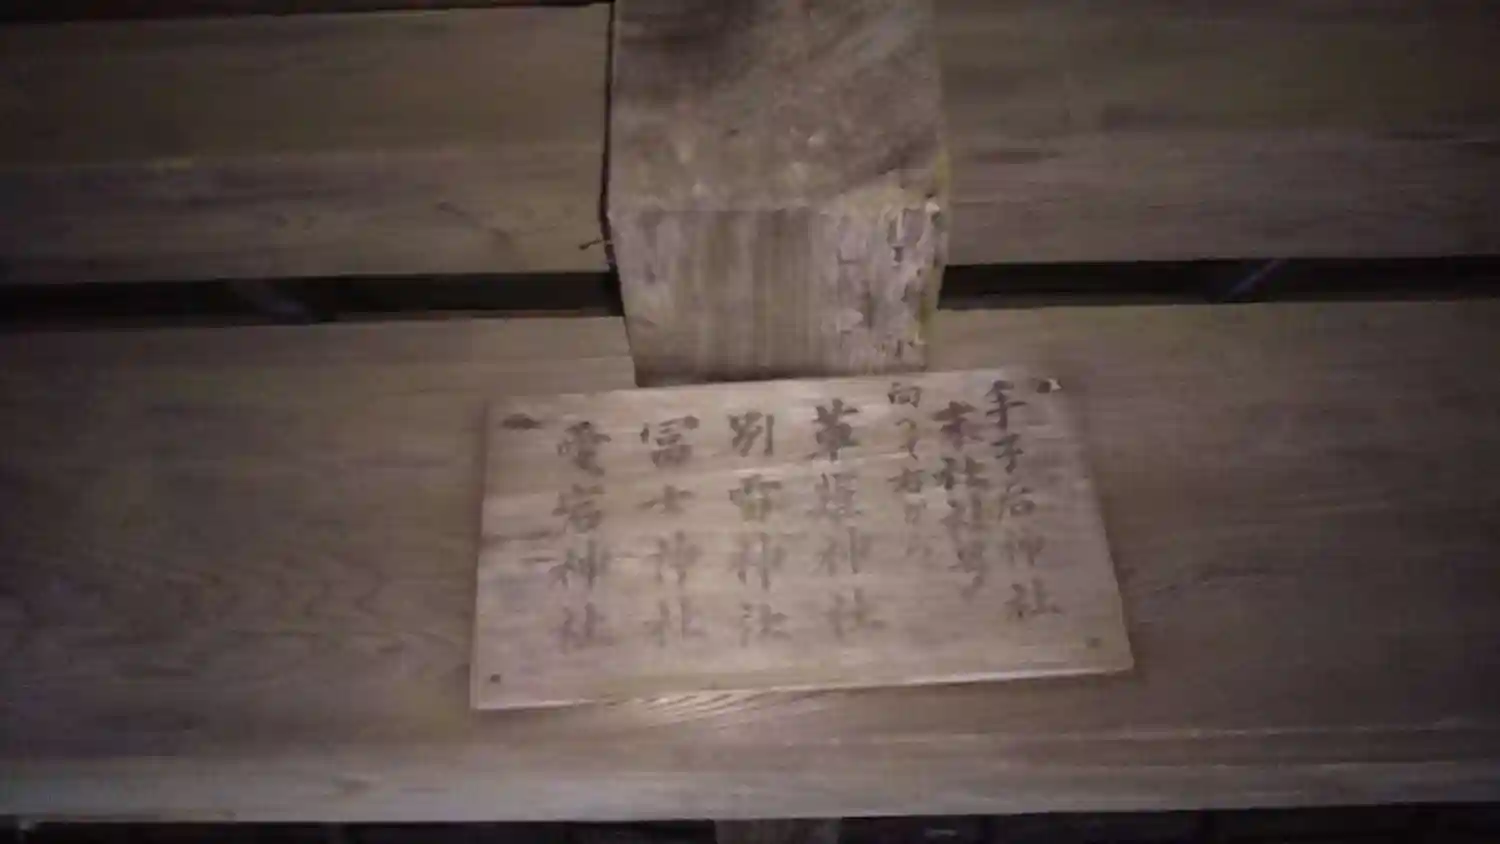 手子后神社
末社社号
向って右から
葦䄄神社
別雷神社
富士神社
愛宕神社